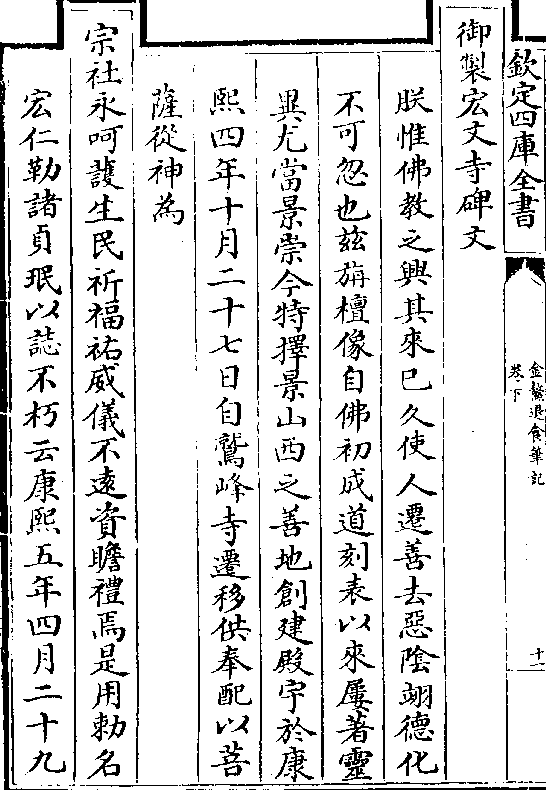 欽定四庫全書
金鰲退食筆記
卷下
十一
御製宏文寺碑文
朕惟佛教之興其來已久使人遷善去惡陰翊德化
不可忽也茲旃檀像自佛初成道刻表以來屢著靈
異尤當景崇今特擇景山西之善地創建殿宇於康
熙四年十月二十七日自鷲峰寺遷移供奉配以菩
薩從神為
宗社永呵護生民祈福祐威儀不遠資瞻禮焉是用勅名
宏仁勒諸貞珉以誌不朽云康熙五年四月二十九